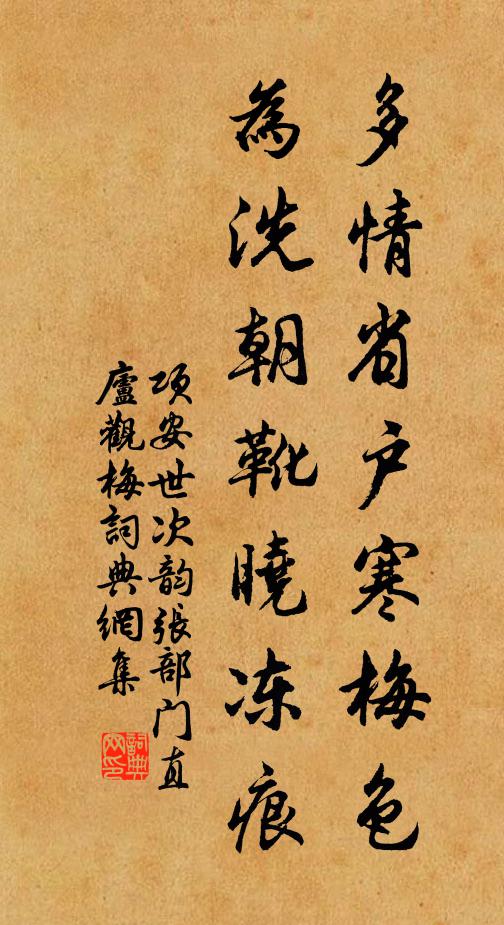 多情省户寒梅色
為洗朝靴曉冻痕
項安世次韵張部门直
廬觀梅詞典網集
詞典网印